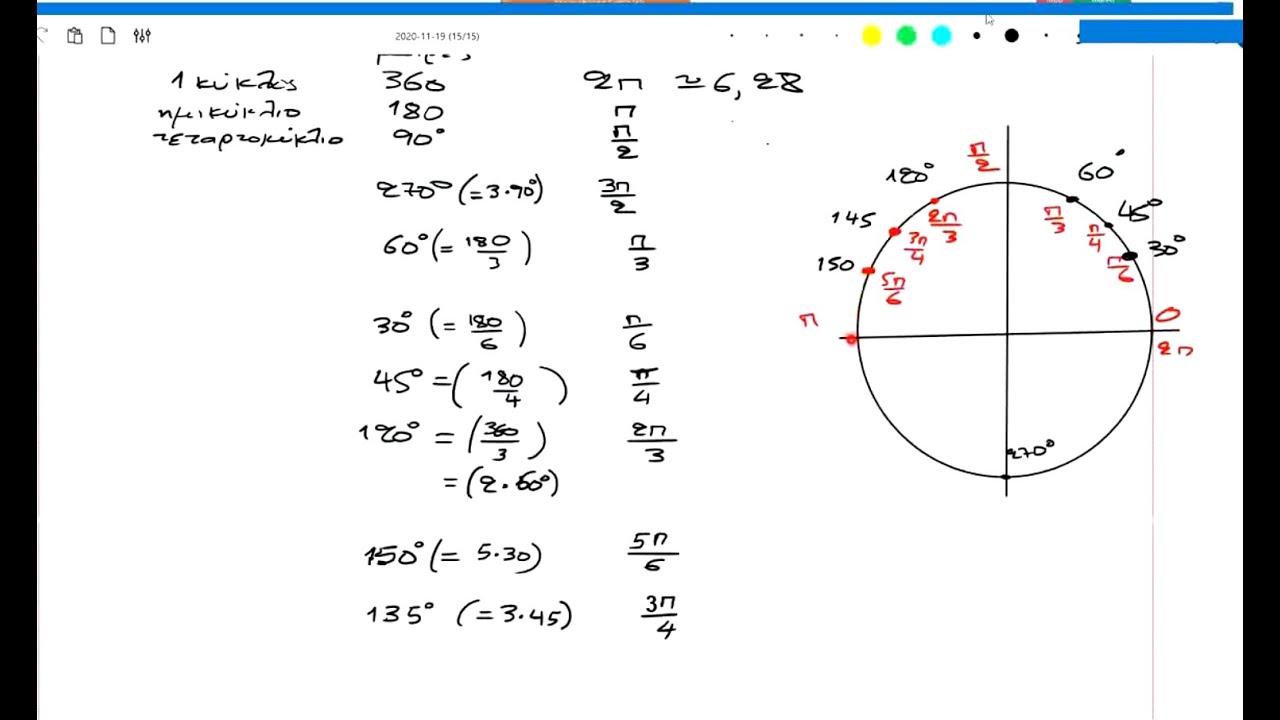 2020-11-19 (15/15)
1 κύκλος 360 2π ≃ 6,28
ημικύκλιο 180 π
τεταρτοκύκλιο 90° π/2
270° (=3·90°) 3π/2
60° (= 180/3) π/3
30° (= 180/6) π/6
45° = (180/4) π/4
120° = (360/3) 2π/3
= (2·60°)
150° (= 5·30) 5π/6
135° (= 3·45) 3π/4
π/2
120° 60°
2π/3 π/3
145 45°
3π/4 π/4
150 30°
5π/6 π/6
π 0
2π
270°